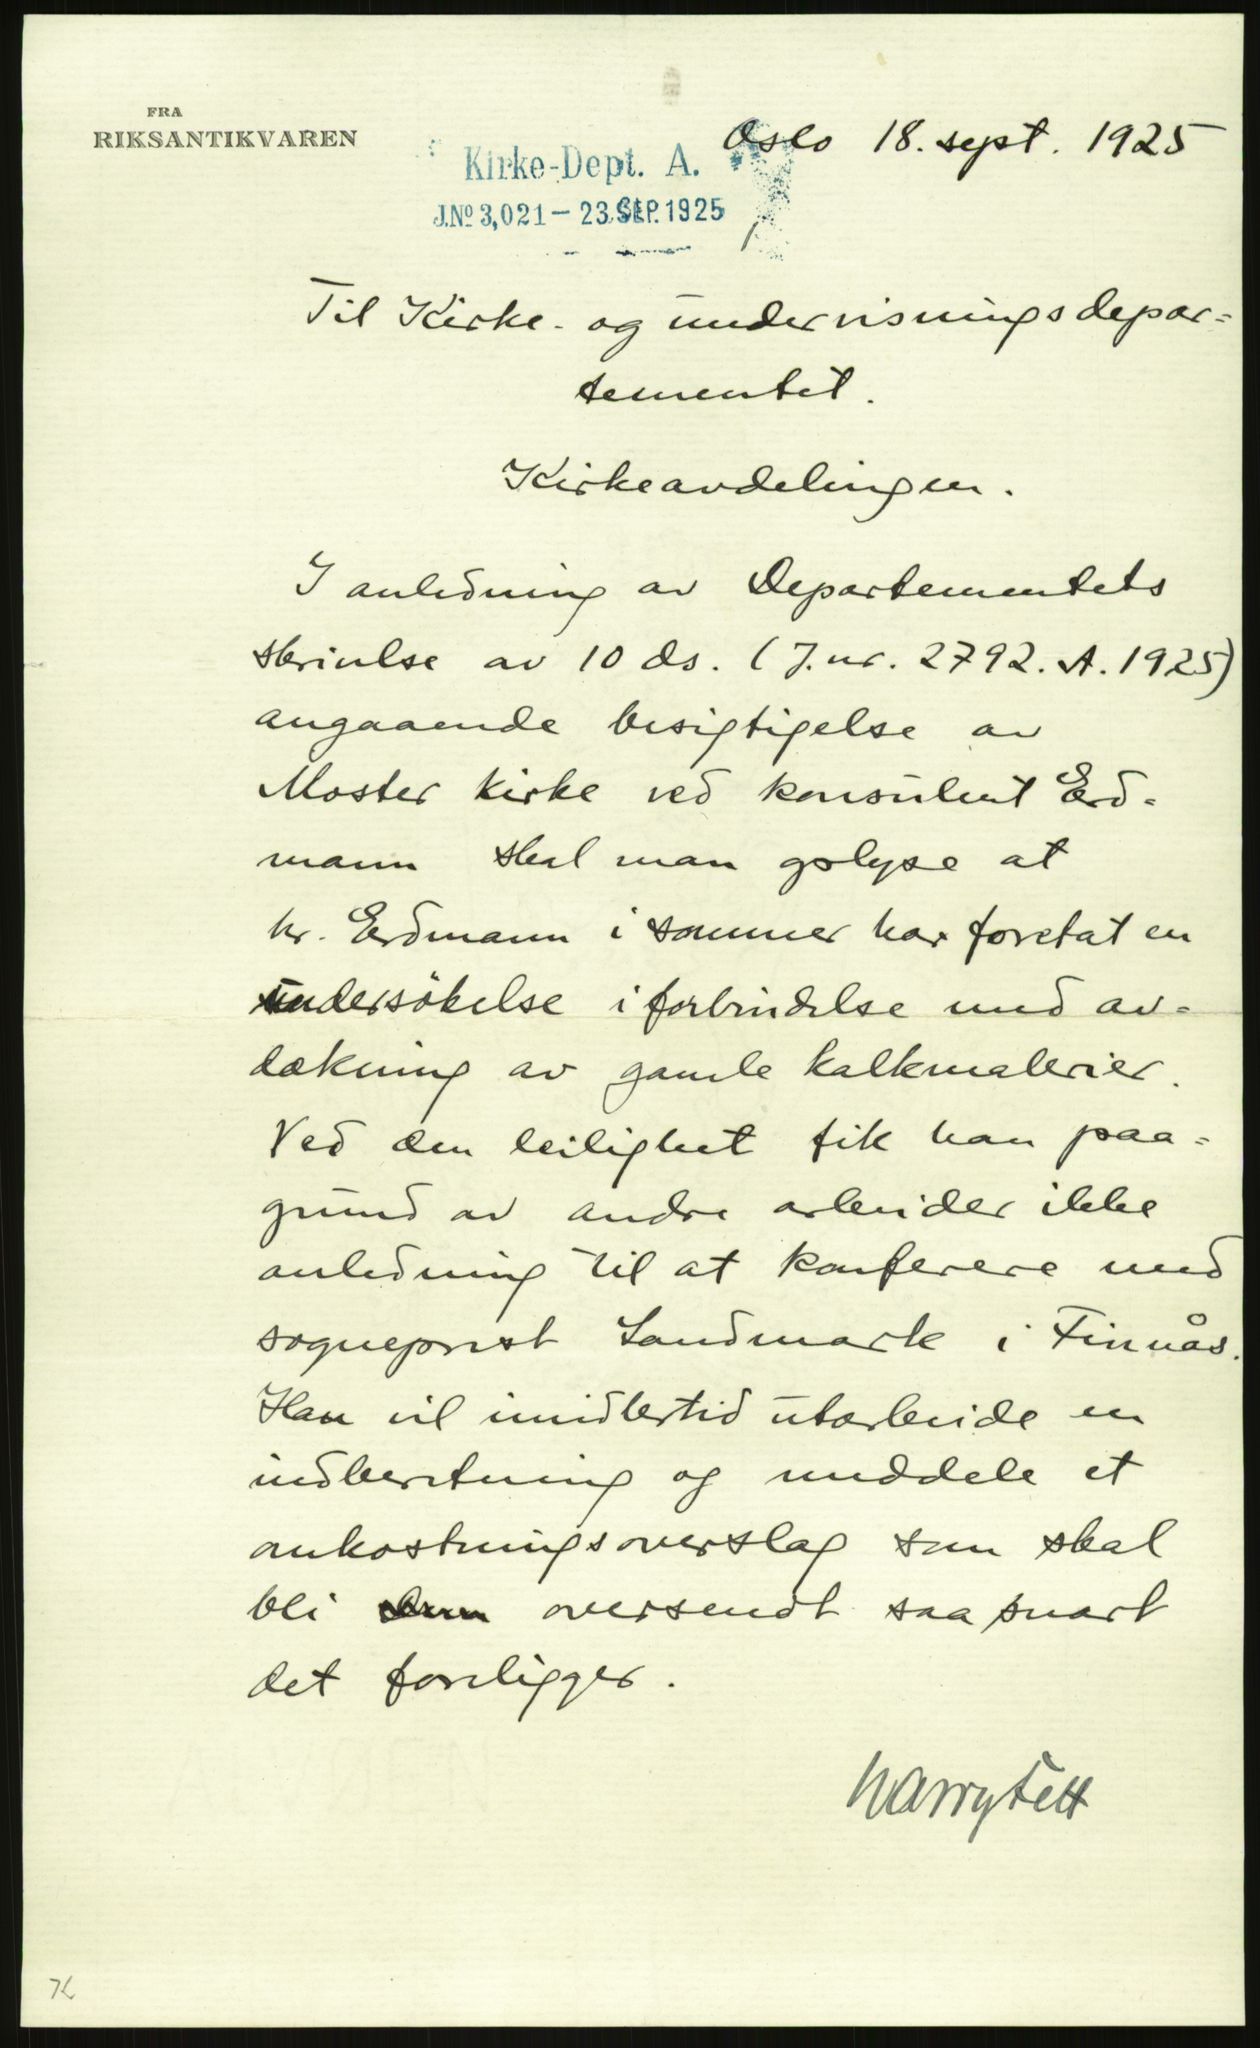 FRA
RIKSANTIKVAREN
Oslo 18. sept. 1925
Kirke-Dept. A.
J.Nº 3,021 - 23 SEP. 1925
Til Kirke- og undervisningsdepar=
tementet.
Kirkeavdelingen.
I anledning av Departementets
skrivelse av 10 ds. (J.nr. 2792. A. 1925)
angaaende besigtigelse av
Moster kirke ved konsulent Erd=
mann skal man oplyse at
hr. Erdmann i sommer har foretat en
undersökelse i forbindelse med av=
dækning av gamle kalkmalerier.
Ved den leilighet fik han paa=
grund av andre arbeider ikke
anledning til at konferere med
sogneprest Landmark i Finnås.
Han vil imidlertid utarbeide en
indberetning og meddele et
omkostningsoverslag som skal
bli oversendt saa snart
det foreligger.
Harry Fett